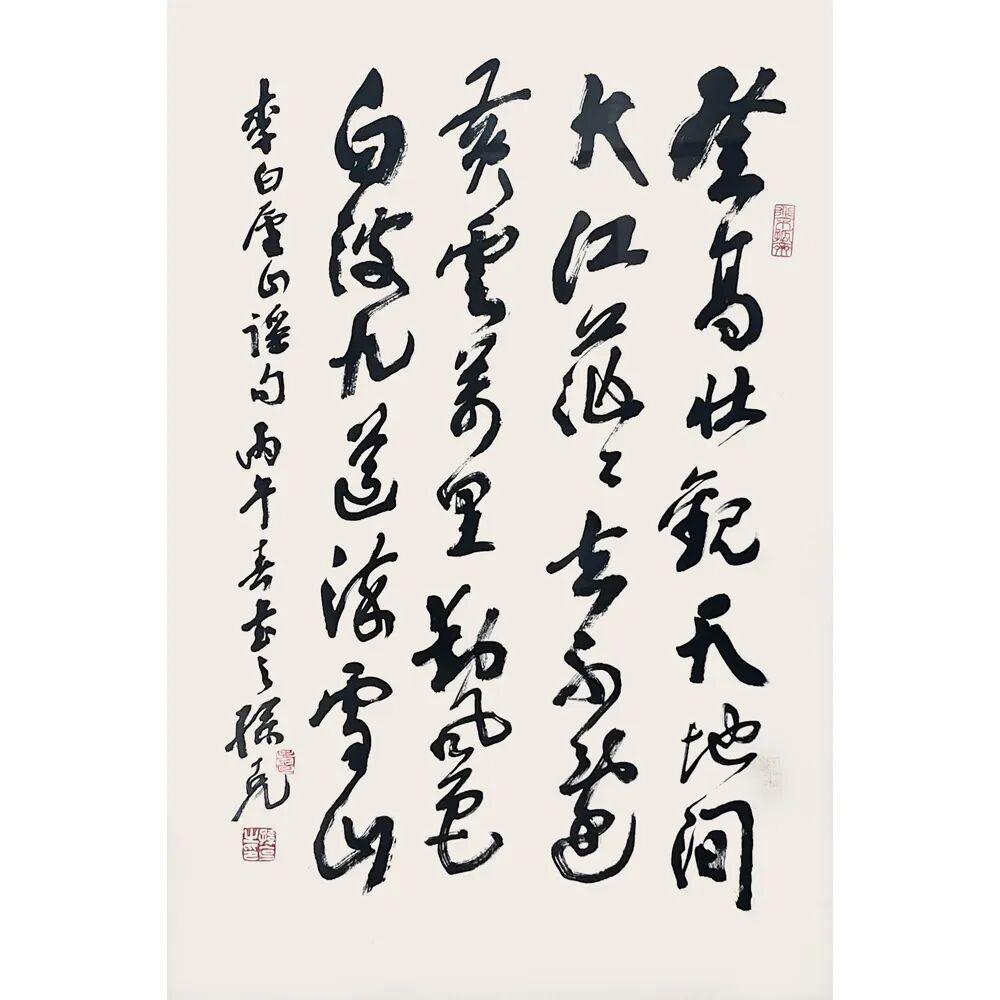 登高壮觀天地间
大江茫〻去不還
黄雲萬里動風色
白波九道流雪山
李白廬山謡句 丙午春 之 孫克